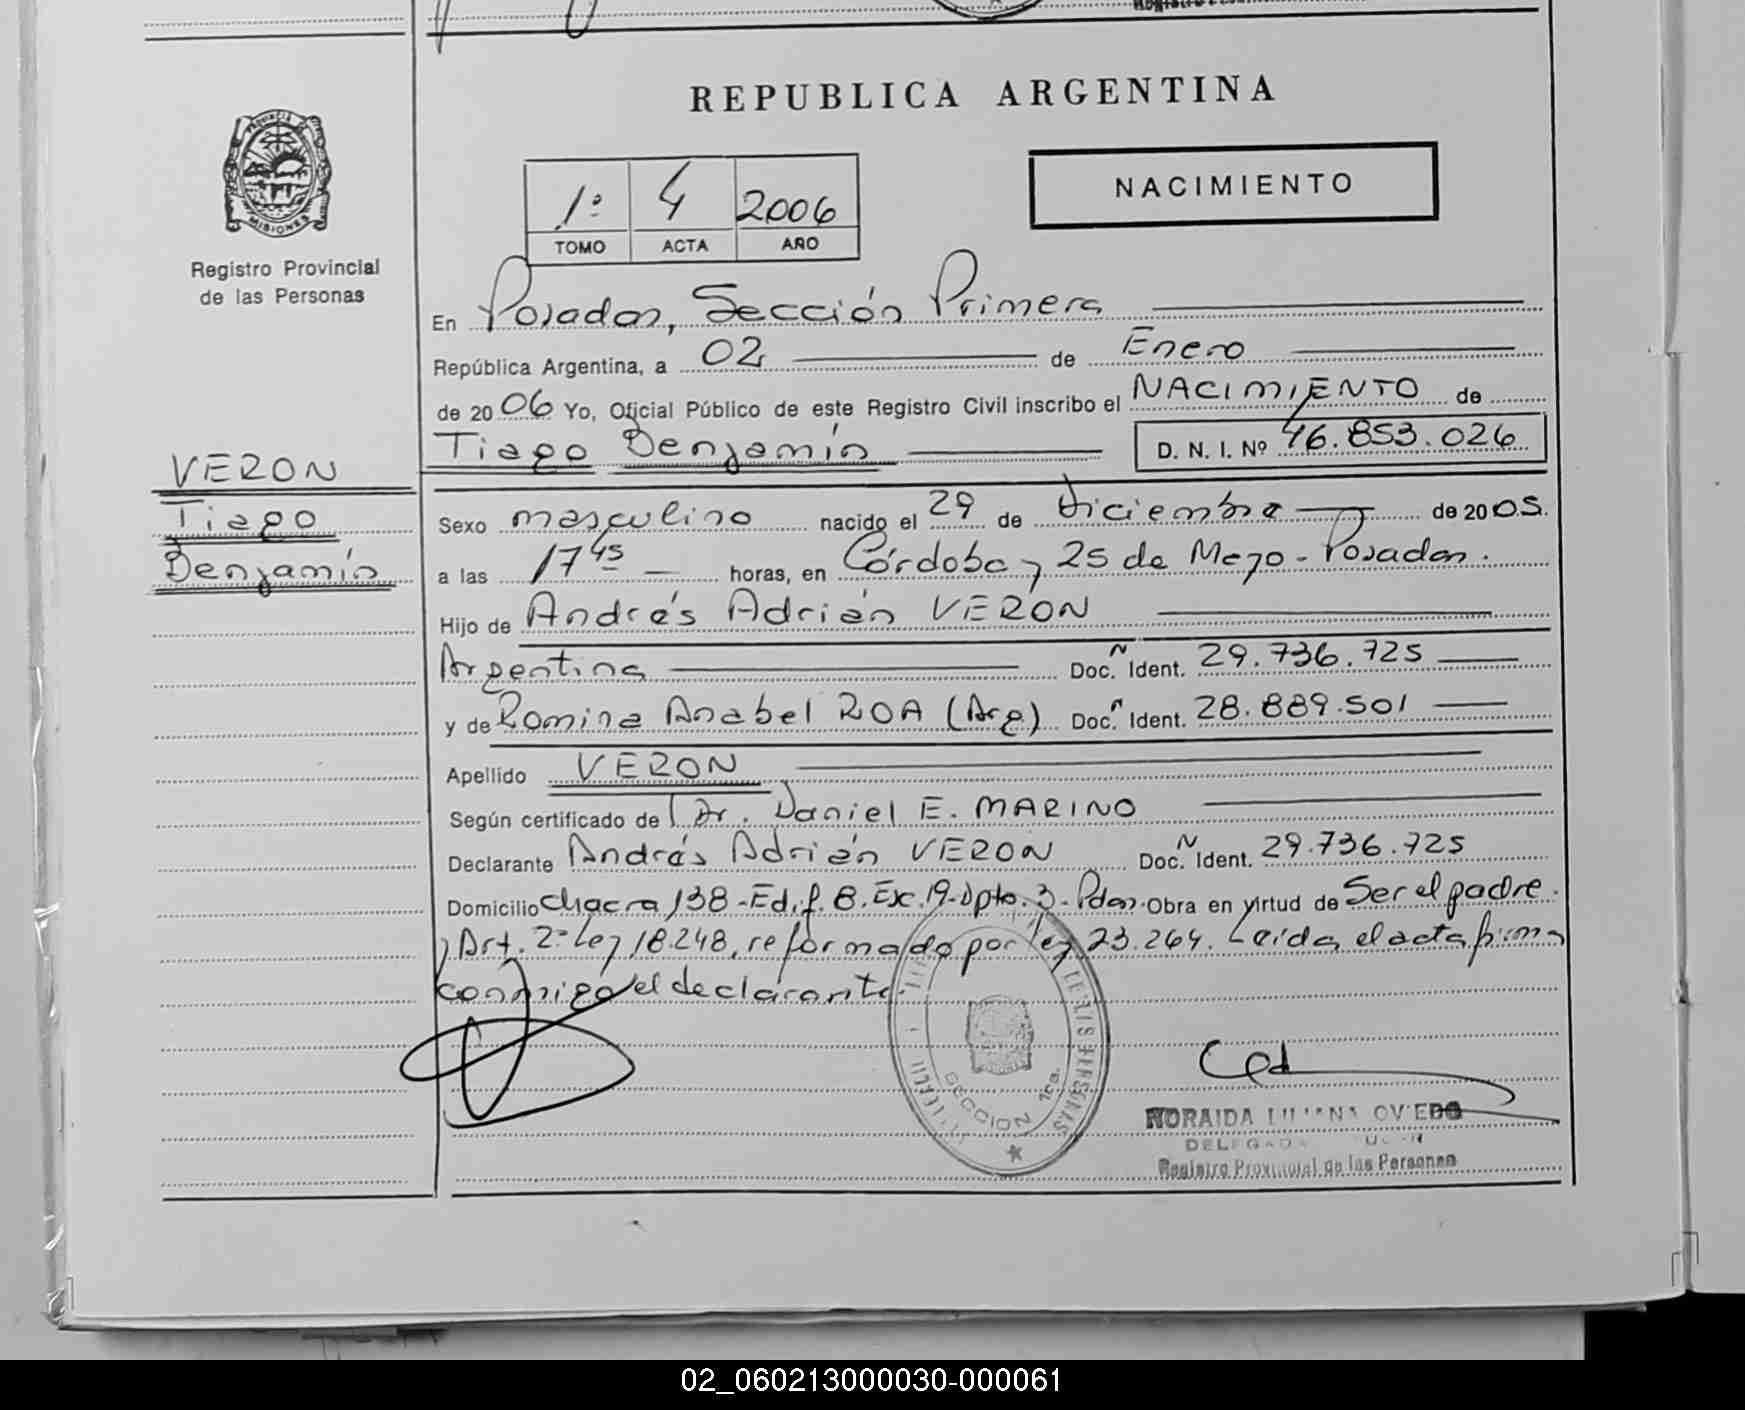 REPUBLICA ARGENTINA
PROVINCIA DE
MISIONES
Registro Provincial
de las Personas
1º 4 2006
TOMO ACTA AÑO
NACIMIENTO
En Posadas, Sección Primera
República Argentina, a 02 de Enero
de 2006 Yo, Oficial Público de este Registro Civil inscribo el NACIMIENTO de
Tiago Benjamín D. N. I. Nº 46.853.026
VERON
Tiago
Benjamín
Sexo masculino nacido el 29 de diciembre de 2005.
a las 17 45 horas, en Córdoba y 25 de Mayo - Posadas.
Hijo de Andrés Adrián VERÓN
Argentina Doc. N Ident. 29.736.725
y de Romina Anabel ROA (Arg) Doc. N Ident. 28.889.501
Apellido VERON
Según certificado de Dr. Daniel E. MARINO
Declarante Andrés Adrián VERON Doc. N Ident. 29.736.725
Domicilio Chacra 138 - Edif. 8. Esc. 19- Dpto. 3 - Pdas. Obra en virtud de Ser el padre.
y Art. 2º Ley 18.248, reformado por ley 23.264. Leída el acta firma
conmigo el declarante.
SECCION 1ra.
DE LAS PERSONAS
NORAIDA LILIANA OVIEDO
DELEGADA
Registro Provincial de las Personas
02_060213000030-000061